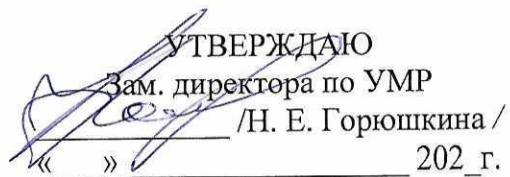 УТВЕРЖДАЮ
Зам. директора по УМР
____________ /Н. Е. Горюшкина /
«___» ________________ 202_г.